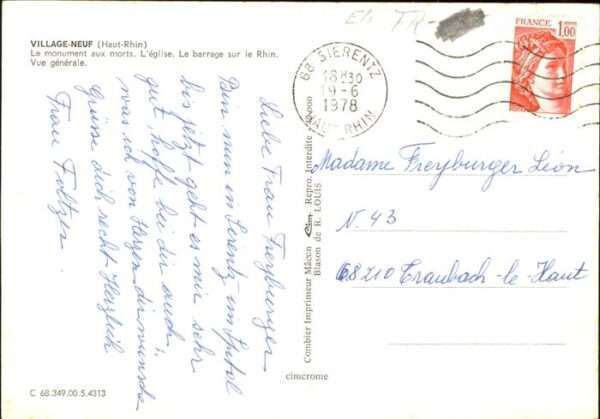 VILLAGE-NEUF (Haut-Rhin)
Le monument aux morts. L'église. Le barrage sur le Rhin.
Vue générale.
FR
68 SIERENTZ
18H30
19-6
1978
HAUT-RHIN
FRANCE
1,00
Liebe Frau Freyburger
Bin nun in Sirentz im Spital
bis jetzt geht es mir sehr
gut, hoffe bei dir auch,
was ich von Herzen dir wünsche
Grüsse dich recht Herzlich
Frau Foltzer.
Combier Imprimeur Mâcon Cim Repro. Interdite
Blason de R. LOUIS
cimcrome
Madame Freyburger Léon
N. 43
68210 Traubach-le-Haut
C 68.349.00.5.4313